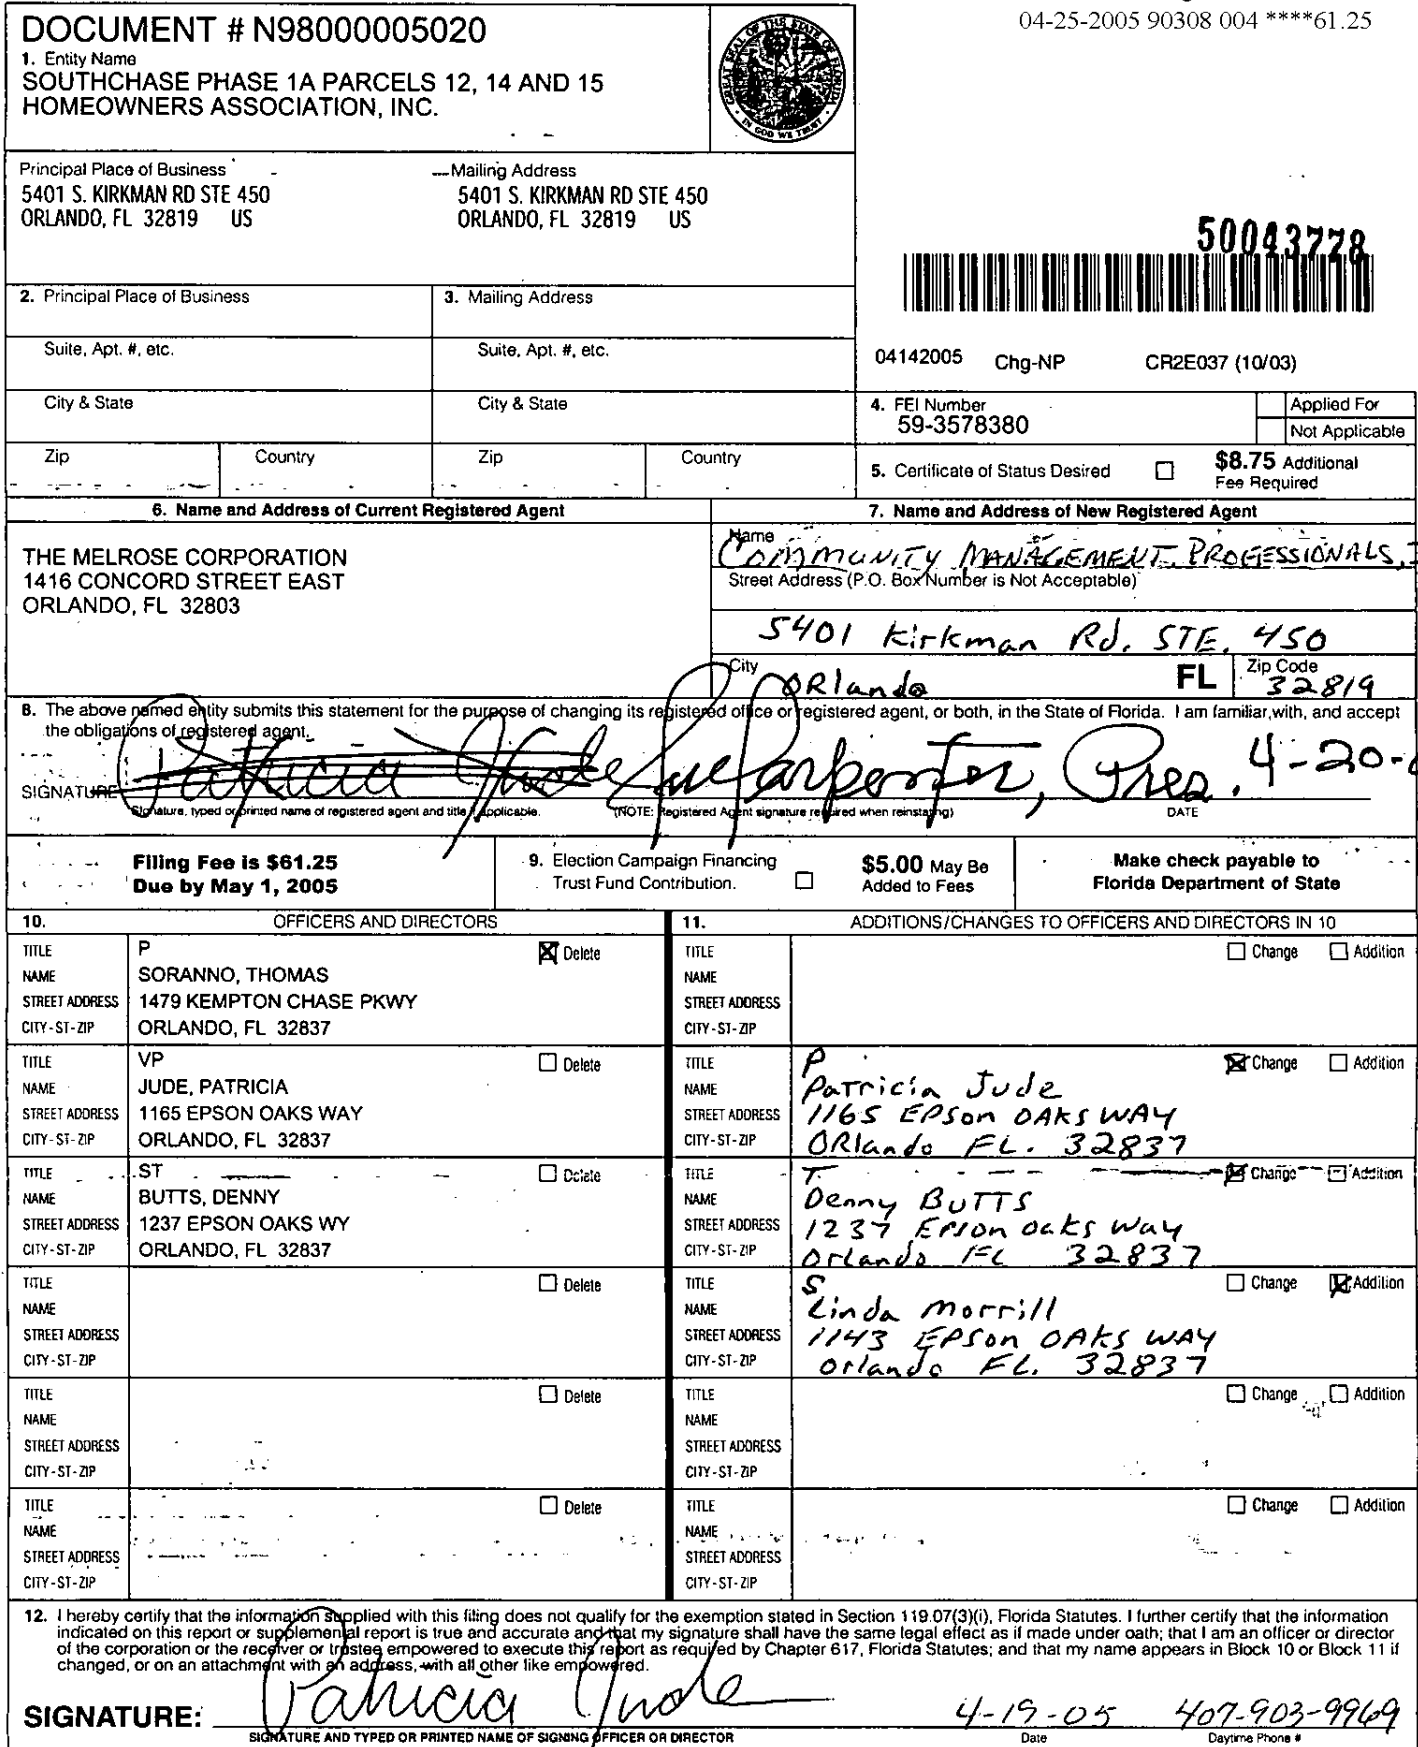 04-25-2005 90308 004 ****61.25
DOCUMENT # N98000005020
1. Entity Name
SOUTHCHASE PHASE 1A PARCELS 12, 14 AND 15
HOMEOWNERS ASSOCIATION, INC.
GREAT SEAL OF THE STATE OF FLORIDA
IN GOD WE TRUST
Principal Place of Business
5401 S. KIRKMAN RD STE 450
ORLANDO, FL 32819 US
Mailing Address
5401 S. KIRKMAN RD STE 450
ORLANDO, FL 32819 US
50043778
2. Principal Place of Business
3. Mailing Address
Suite, Apt. #, etc.
Suite, Apt. #, etc.
04142005 Chg-NP CR2E037 (10/03)
City & State
City & State
4. FEI Number
59-3578380
Applied For
Not Applicable
Zip Country
Zip Country
5. Certificate of Status Desired
$8.75 Additional
Fee Required
6. Name and Address of Current Registered Agent
7. Name and Address of New Registered Agent
THE MELROSE CORPORATION
1416 CONCORD STREET EAST
ORLANDO, FL 32803
Name
COMMUNITY MANAGEMENT PROFESSIONALS,
Street Address (P.O. Box Number is Not Acceptable)
5401 Kirkman Rd. STE. 450
City
ORlando
FL
Zip Code
32819
8. The above named entity submits this statement for the purpose of changing its registered office or registered agent, or both, in the State of Florida. I am familiar with, and accept
the obligations of registered agent.
SIGNATURE Patricia Jude Sue Carpenter, Pres. 4-20-
Signature, typed or printed name of registered agent and title if applicable. (NOTE: Registered Agent signature required when reinstating) DATE
Filing Fee is $61.25
Due by May 1, 2005
9. Election Campaign Financing
Trust Fund Contribution.
$5.00 May Be
Added to Fees
Make check payable to
Florida Department of State
10. OFFICERS AND DIRECTORS
11. ADDITIONS/CHANGES TO OFFICERS AND DIRECTORS IN 10
TITLE P Delete
NAME SORANNO, THOMAS
STREET ADDRESS 1479 KEMPTON CHASE PKWY
CITY-ST-ZIP ORLANDO, FL 32837
TITLE Change Addition
NAME
STREET ADDRESS
CITY-ST-ZIP
TITLE VP Delete
NAME JUDE, PATRICIA
STREET ADDRESS 1165 EPSON OAKS WAY
CITY-ST-ZIP ORLANDO, FL 32837
TITLE P Change Addition
NAME Patricia Jude
STREET ADDRESS 1165 EPSON OAKS WAY
CITY-ST-ZIP ORlando FL. 32837
TITLE ST Delete
NAME BUTTS, DENNY
STREET ADDRESS 1237 EPSON OAKS WY
CITY-ST-ZIP ORLANDO, FL 32837
TITLE T. Change Addition
NAME Denny BUTTS
STREET ADDRESS 1237 Epson oaks Way
CITY-ST-ZIP Orlando FL 32837
TITLE Delete
NAME
STREET ADDRESS
CITY-ST-ZIP
TITLE S Change Addition
NAME Linda Morrill
STREET ADDRESS 1143 EPSon OAKS WAY
CITY-ST-ZIP Orlando FL. 32837
TITLE Delete
NAME
STREET ADDRESS
CITY-ST-ZIP
TITLE Change Addition
NAME
STREET ADDRESS
CITY-ST-ZIP
TITLE Delete
NAME
STREET ADDRESS
CITY-ST-ZIP
TITLE Change Addition
NAME
STREET ADDRESS
CITY-ST-ZIP
12. I hereby certify that the information supplied with this filing does not qualify for the exemption stated in Section 119.07(3)(i), Florida Statutes. I further certify that the information
indicated on this report or supplemental report is true and accurate and that my signature shall have the same legal effect as if made under oath; that I am an officer or director
of the corporation or the receiver or trustee empowered to execute this report as required by Chapter 617, Florida Statutes; and that my name appears in Block 10 or Block 11 if
changed, or on an attachment with an address, with all other like empowered.
SIGNATURE: Patricia Jude 4-19-05 407-903-9969
SIGNATURE AND TYPED OR PRINTED NAME OF SIGNING OFFICER OR DIRECTOR Date Daytime Phone #